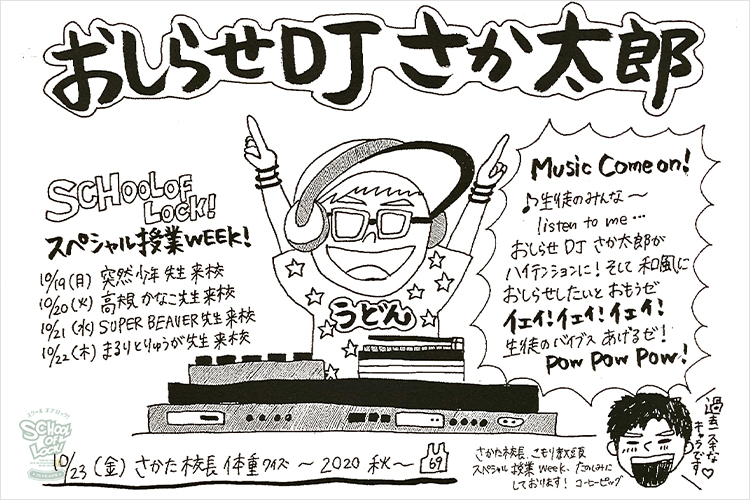 おしらせDJ さか太郎
SCHOOL OF
LOCK!
スペシャル授業WEEK!
10/19(月) 突然少年先生来校
10/20(火) 高根かなこ先生来校
10/21(水) SUPER BEAVER先生来校
10/22(木) まるりとりゅうが先生来校
うどん
Music Come on!
♪生徒のみんな〜
listen to me…
おしらせDJ さか太郎が
ハイテンションに!そして和風に
おしらせしたいとおもうぜ
イェイ!イェイ!イェイ!
生徒のバイブスあげるぜ!
POW POW POW!
過去イチな
キャラです♡
スクール オブ ロック!
SCHOOL
OF
LOCK!
10/23(金) さかた校長 体重クイズ 〜2020 秋〜
69
さかた校長、こもり教頭
スペシャル授業Week、たのしみに
しております! コーヒーピッグ